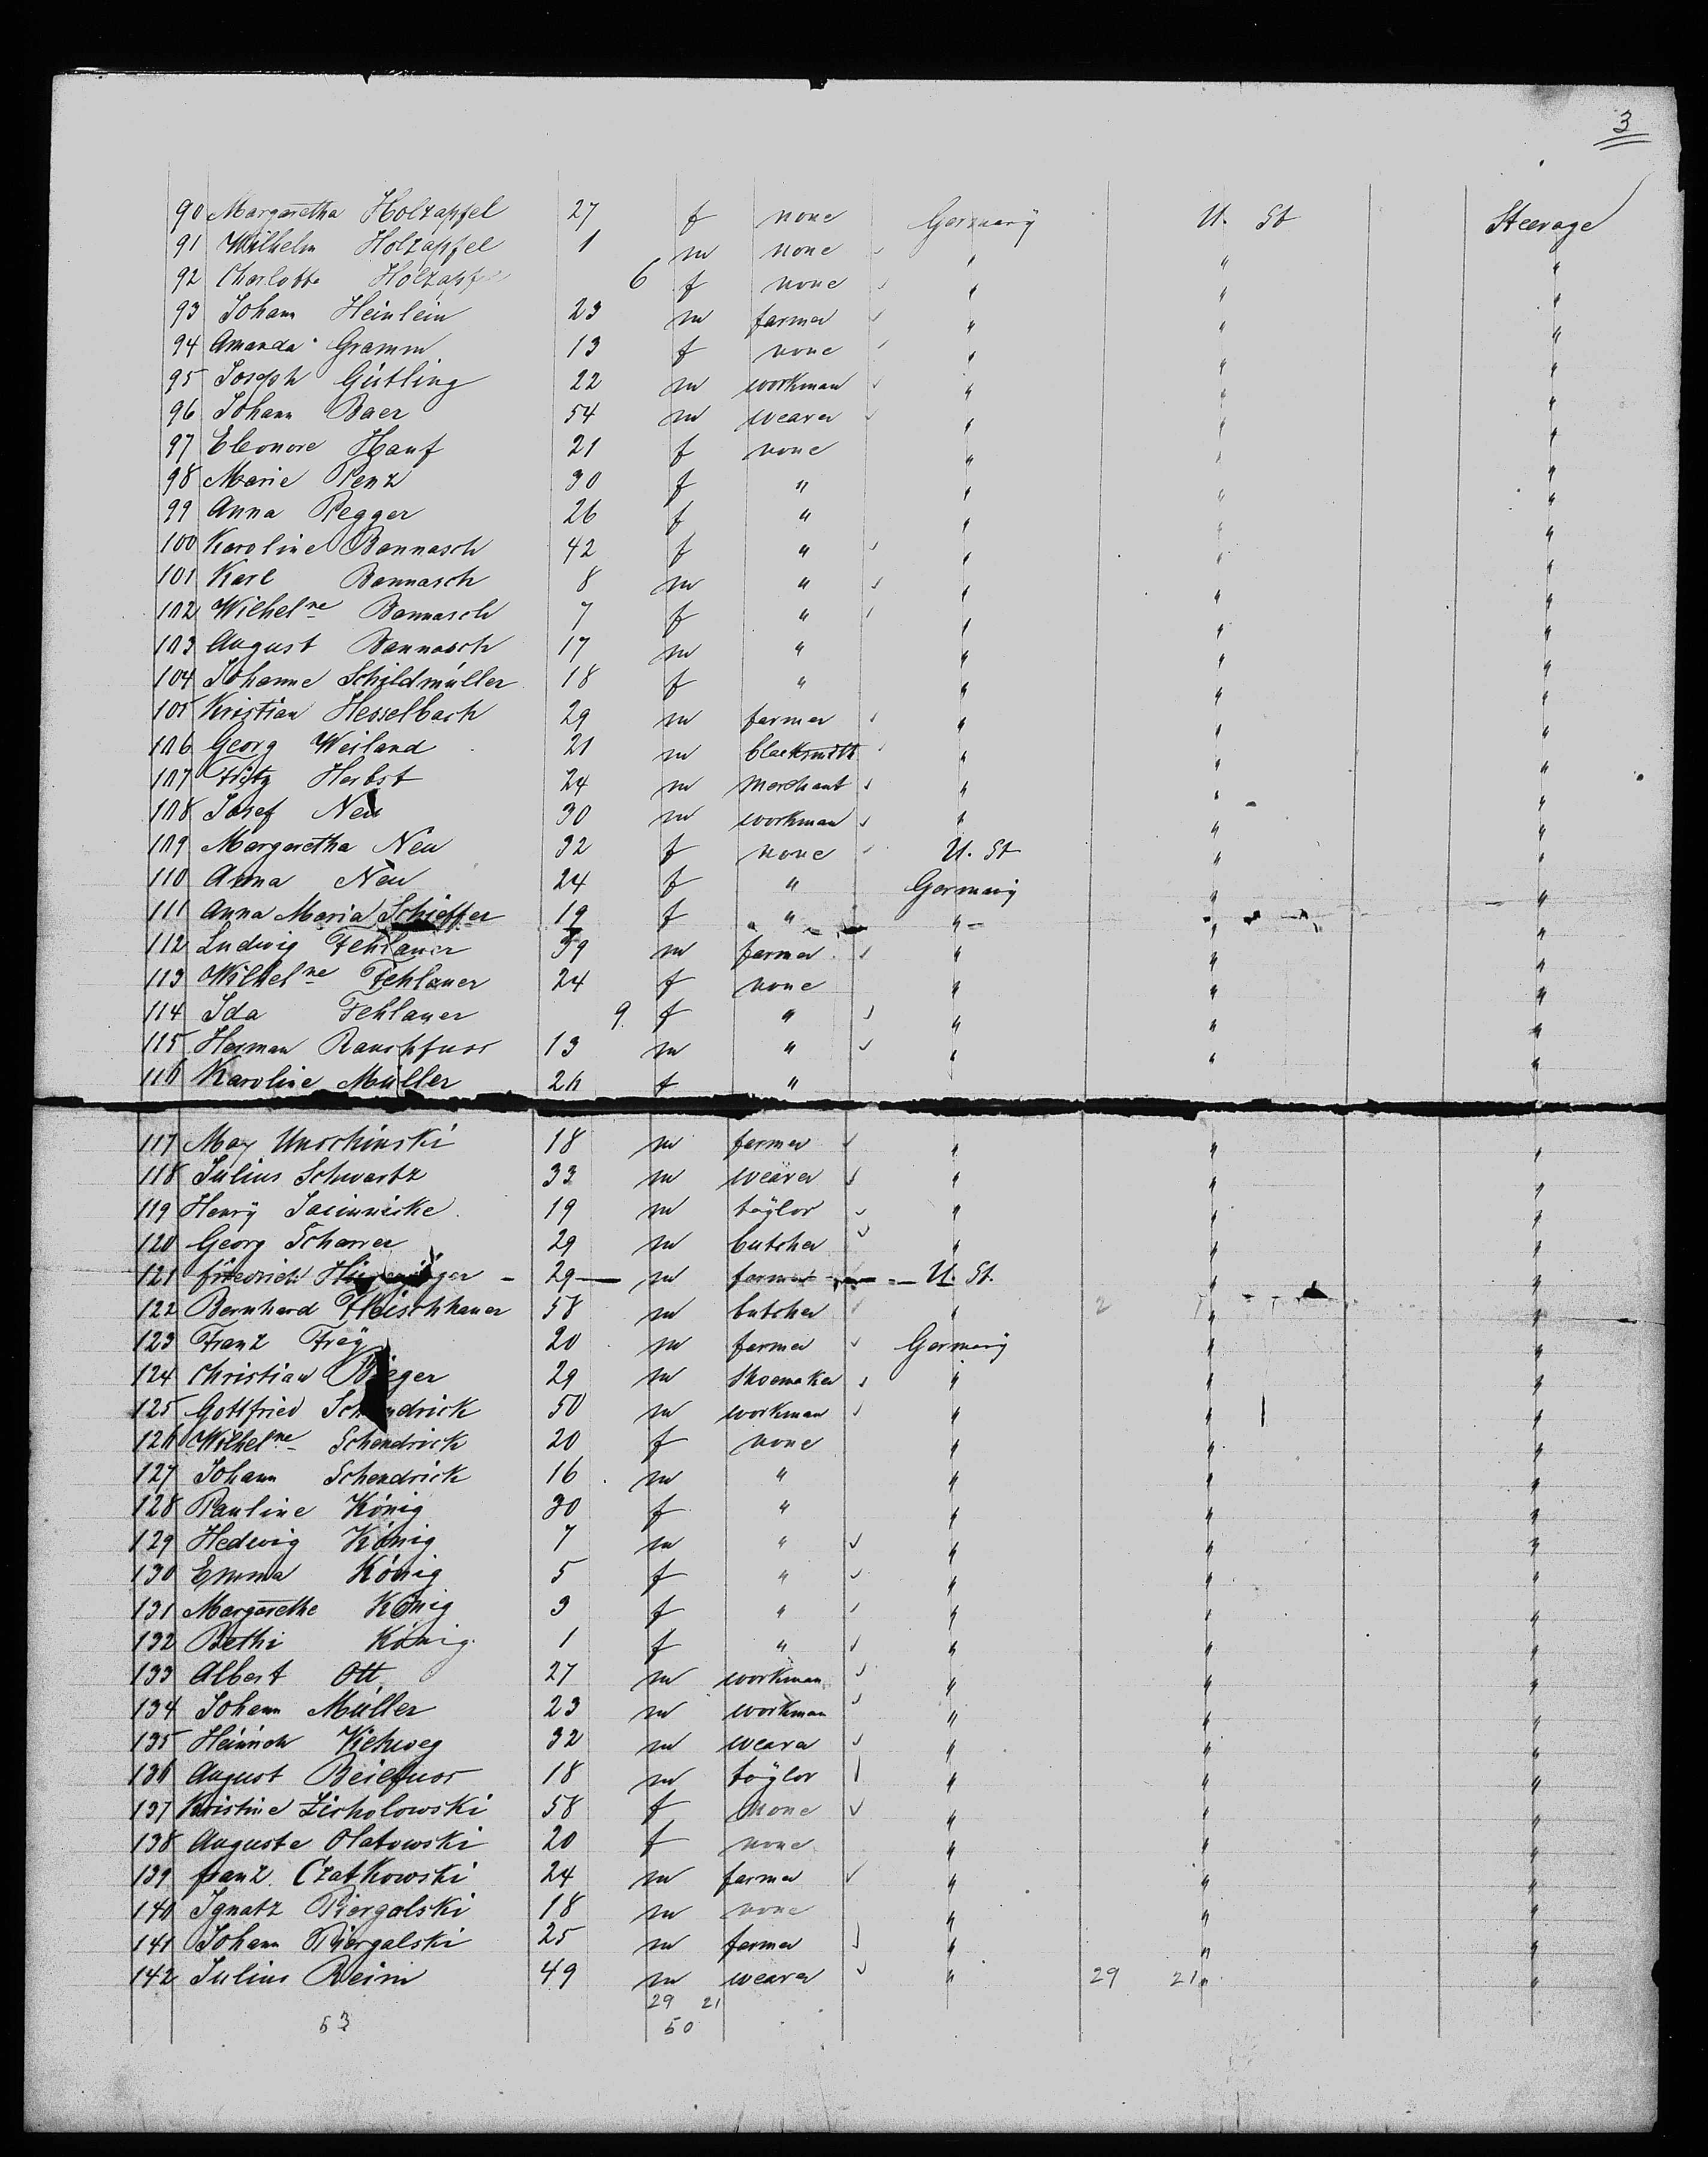 3
90 Margaretha Holzapfel 27 f none Germany U. St Steerage
91 Wilhelm Holzapfel 1 m none " " "
92 Charlotte Holzapfel 6 f none " " "
93 Johann Heinlein 23 m farmer " " "
94 Amanda Gramm 13 f none " " "
95 Joseph Gütling 22 m workman " " "
96 Johann Baer 54 m weaver " " "
97 Eleonore Hanf 21 f none " " "
98 Marie Penz 30 f " " " "
99 Anna Pegger 26 f " " " "
100 Karoline Bannasch 42 f " " " "
101 Karl Bannasch 8 m " " " "
102 Wilhelne Bannasch 7 f " " " "
103 August Bannasch 17 m " " " "
104 Johanne Schildmüller 18 f " " " "
105 Kristian Hesselbach 29 m farmer " " "
106 Georg Weiland 21 m blacksmith " " "
107 Fritz Herbst 24 m merchant " " "
108 Josef Neu 30 m workman " " "
109 Margaretha Neu 32 f none U. St " "
110 Anna Neu 24 f " Germany " "
111 Anna Maria Schieffer 19 f " " " "
112 Ludwig Fehlauer 39 m farmer " " "
113 Wilhelne Fehlauer 24 f none " " "
114 Ida Fehlauer 9 f " " " "
115 Herman Rauchfuss 13 m " " " "
116 Karoline Müller 26 f "
117 Max Unschinski 18 m farmer " " "
118 Julius Schwartz 33 m weaver " " "
119 Henry 19 m taylor " " "
120 Georg Scherrer 29 m butcher " " "
121 friedrich 29 m farmer U. St. " "
122 Bernhard Fleischhauer 58 m butcher " " "
123 Franz Frey 20 m farmer Germany " "
124 Christian Bieger 29 m Shoemaker " " "
125 Gottfried Schendrick 50 m workman " " "
126 Wilhelne Schendrick 20 f none " " "
127 Johann Schendrick 16 m " " " "
128 Pauline König 30 f " " " "
129 Hedwig König 7 m " " " "
130 Emma König 5 f " " " "
131 Margarethe König 3 f " " " "
132 Bethi König 1 f " " " "
133 Albert Ott 27 m workman " " "
134 Johann Müller 23 m workman " " "
135 Heinrich Viehweg 32 m weaver " " "
136 August Beiefuss 18 m taylor " " "
137 Kristine Zicholowski 58 f none " " "
138 Auguste Olatowski 20 f none " " "
139 franz Czatkowski 24 m farmer " " "
140 Ignatz Piergalski 18 m none " " "
141 Johann Piergalski 25 m farmer " " "
142 Julius Reim 49 m weaver " 29 21 " "
29 21
53 50